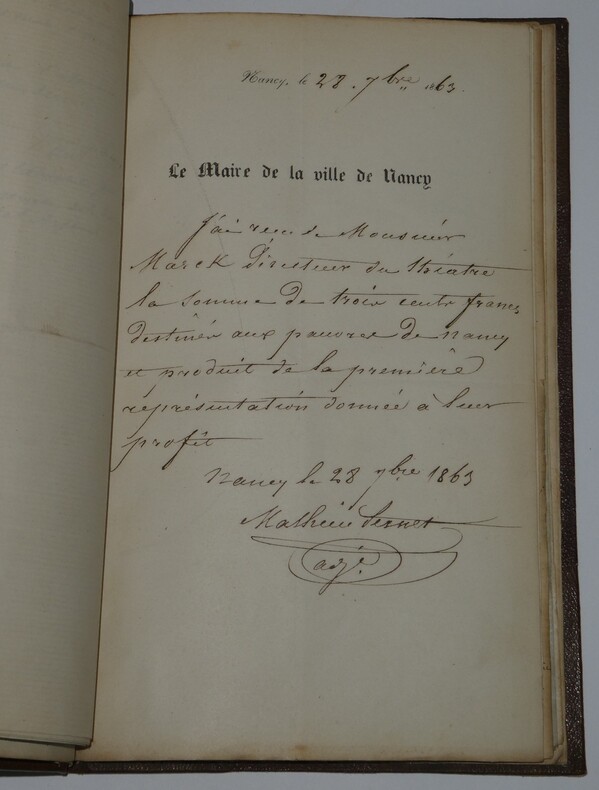 Nancy, le 28. 7bre 1863.
Le Maire de la ville de Nancy
J'ai recu de Monsieur
Marck directeur du théatre
la somme de trois cents francs
destinée aux pauvres de Nancy
et produit de la première
représentation donnée à leur
profit
Nancy le 28 7bre 1863
Mathieu
adjt.